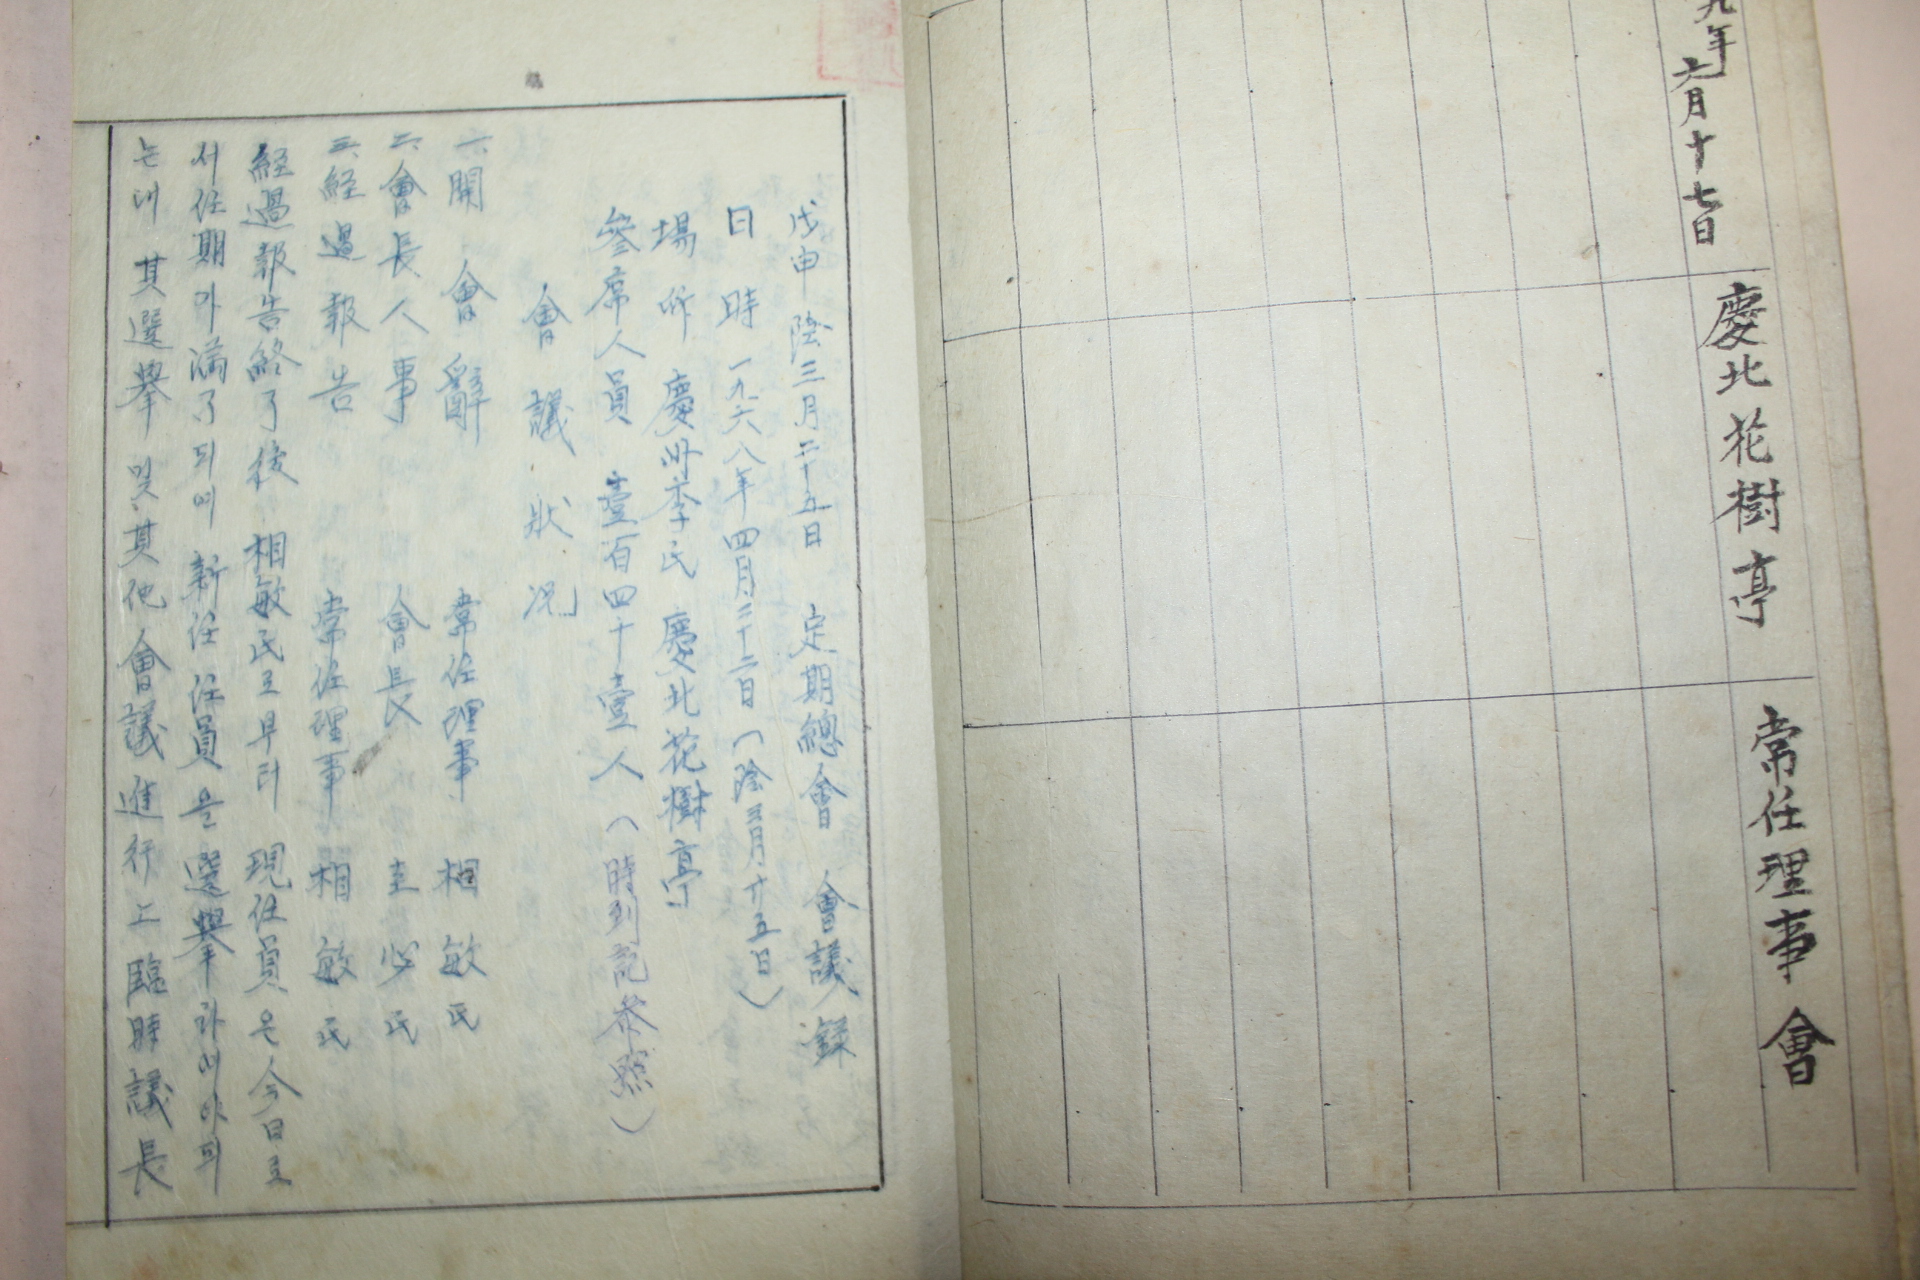 九年 六月十七日 慶北花樹亭 常任理事會
戊申 陰三月二十五日 定期總會 會議錄
日時 一九六八年四月二十二日(陰三月廿五日)
場所 慶州李氏 慶北花樹亭
參席人員 壹百四十壹人(時到記參照)
會議狀況
一、開會辭 常任理事 相敏氏
二、會長人事 會長 圭 氏
三、経過報告 常任理事 相敏氏
経過報告終了後 相敏氏로부터 現任員은 今日로
서 任期가 滿了되여 新任任員을 選擧하여야되
는대 其選擧 및 其他會議進行上 臨時議長